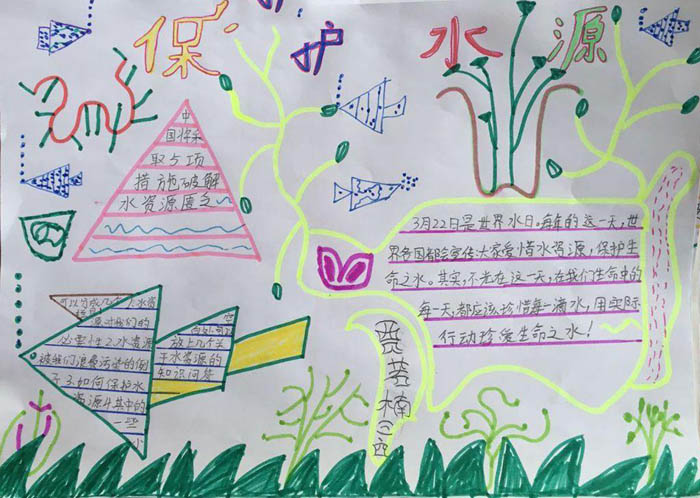 保护水源
中
国将采
取5项
措施破解
水资源匮乏
3月22日是世界水日。每年的这一天,世
界各国都会宣传大家爱惜水资源,保护生
命之水。其实,不光在这一天,在我们生命中的
每一天,都应该珍惜每一滴水,用实际
行动珍爱生命之水!
对我们的
必要性2.水资源
被我们浪费污染的例
子3.如何保护水
资源4.其中的
一些
小
放上几个关
于水资源的
知识问答